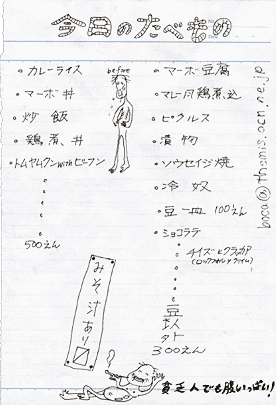 今日のたべもの
before
・カレーライス
・マーボ丼
・炒飯
・鶏煮丼
・トムヤムクンwithビーフン
500えん
・マーボ豆腐
・マレー風鶏煮込
・ピクルス
・漬物
・ソウセイジ焼
・冷奴
・豆一皿 100えん
・ショコララテ
チイズとクラッカア
豆
300えん
boca@themis.ocn.ne.jp
みそ汁あり〼
貧乏人でも腹いっぱい!